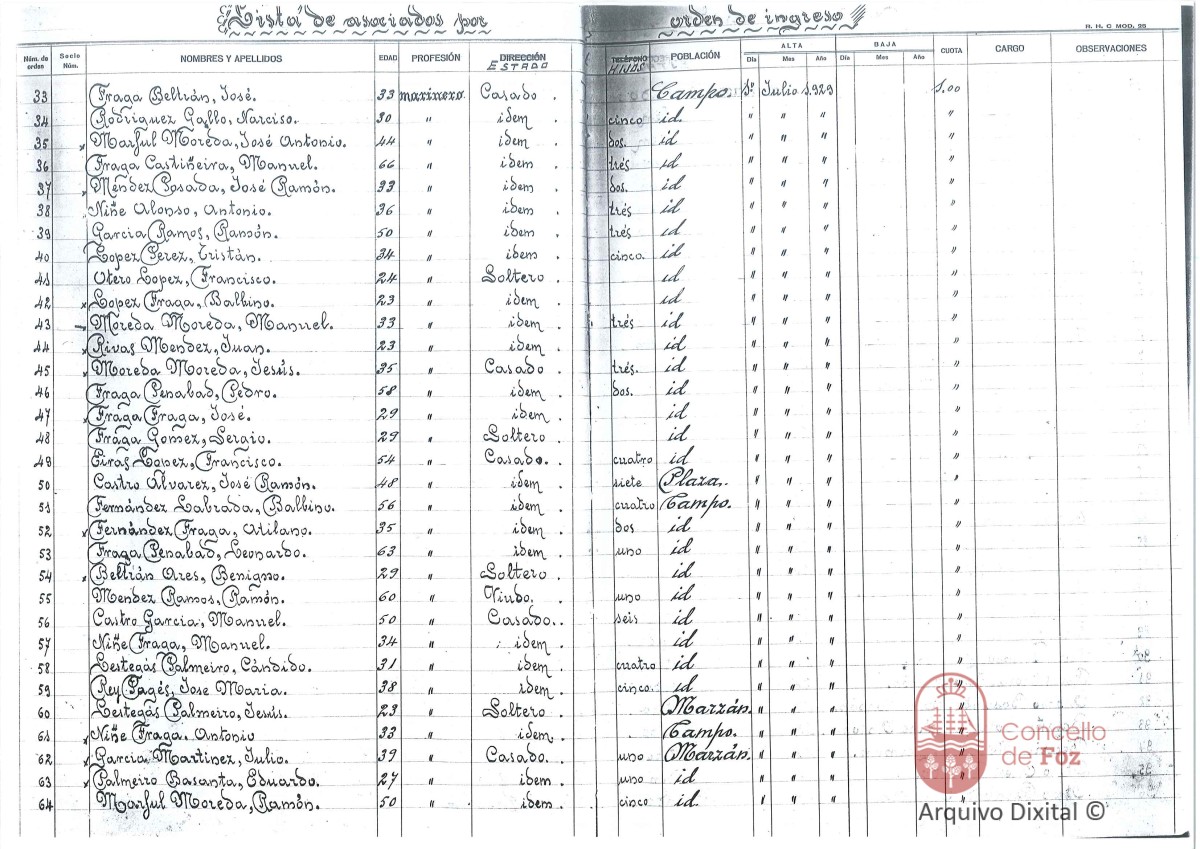 Lista de asociados por orden de ingreso
R. H. C MOD, 26
Núm. de orden Socio Núm. NOMBRES Y APELLIDOS EDAD PROFESIÓN DIRECCIÓN ESTADO TELÉFONO HIJOS POBLACIÓN ALTA Día Mes Año BAJA Día Mes Año CUOTA CARGO OBSERVACIONES
33 Fraga Beltrán, José. 33 marinero Casado. Campo. 1º Julio 1.929 1.00
34 Rodriguez Gallo, Narciso. 30 " idem . cinco id. " " " "
35 Marful Moreda, José Antonio. 44 " idem . dos. id " " " "
36 Fraga Castiñeira, Manuel. 66 " idem . trés id " " " "
37 Méndez Posada, José Ramón. 33 " idem . dos. id " " " "
38 Niñe Alonso, Antonio. 36 " idem . trés id " " " "
39 Garcia Ramos, Ramón. 50 " idem . trés id " " " "
40 Lopez Perez, Tristán. 34 " idem . cinco. id " " " "
41 Otero Lopez, Francisco. 24 " Soltero . id " " " "
42 Lopez Fraga, Balbino. 23 " idem . id " " " "
43 Moreda Moreda, Manuel. 33 " idem . trés id " " " "
44 Rivas Mendez, Juan. 23 " idem . id " " " "
45 Moreda Moreda, Jesús. 35 " Casado . trés. id " " " "
46 Fraga Penabad, Pedro. 58 " idem . dos. id " " " "
47 Fraga Fraga, José. 29 " idem . id " " " "
48 Fraga Gomez, Sergio. 29 " Soltero . id " " " "
49 Eiras Lopez, Francisco. 54 " Casado. . cuatro id " " " "
50 Castro Alvarez, José Ramón. 48 " idem . siete Plaza. " " " "
51 Fernández Labrada, Balbino. 56 " idem . cuatro Campo. " " " "
52 Fernández Fraga, Atilano. 35 " idem . dos id " " " "
53 Fraga Penabad, Leonardo. 63 " idem . uno id " " " "
54 Beltrán Ares, Benigno. 29 " Soltero . id " " " "
55 Mendez Ramos, Ramón. 60 " Viudo. . uno id " " " "
56 Castro Garcia, Manuel. 50 " Casado. . seis id " " " "
57 Niñe Fraga, Manuel. 34 " idem . id " " " "
58 Lestegás Palmeiro, Cándido. 31 " idem . cuatro id " " " "
59 Rey Pagés, Jose Maria. 38 " idem . cinco. id " " " "
60 Lestegás Palmeiro, Jesús. 23 " Soltero . Marzán. " " " "
61 Niñe Fraga. Antonio 33 " idem . Campo. " " " "
62 Garcia Martinez, Julio. 39 " Casado. . uno Marzán. " " " "
63 Palmeiro Basanta, Eduardo. 27 " idem . uno id " " " "
64 Marful Moreda, Ramón. 50 " idem . cinco id. " " " "
Concello de Foz
Arquivo Dixital ©